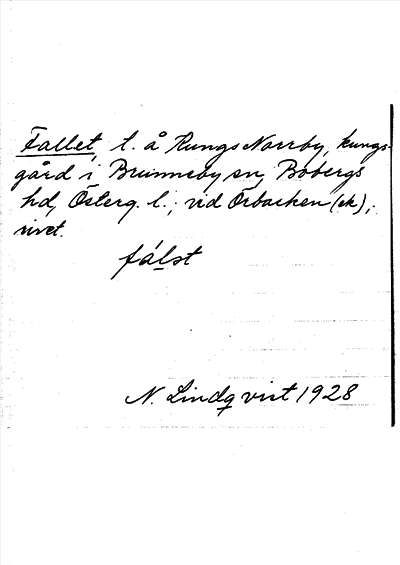 Fallet, l. å Kungs Norrby, kungs-
gård i Brunneby sn, Bobergs
hd, Österg. l.; vid Örbacken (ek);
rivet.
fálst
N. Lindqvist 1928